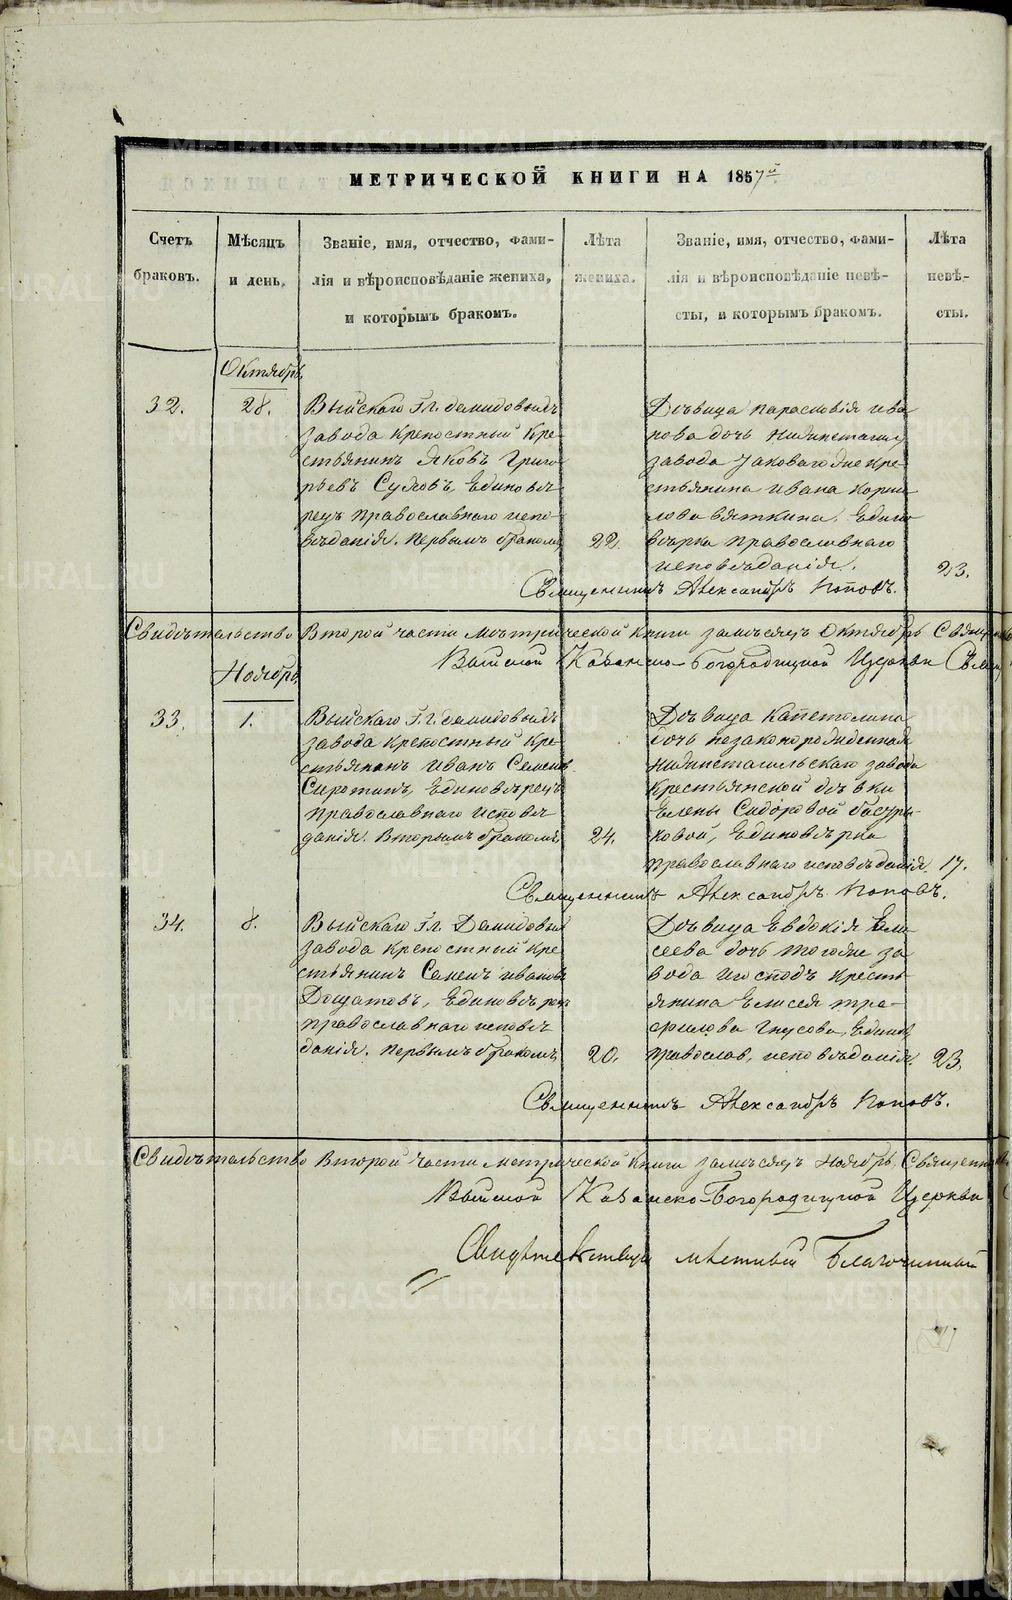 МЕТРИЧЕСКОЙ КНИГИ НА 1857й.
Счетъ браковъ.
Мѣсяцъ и день.
Званіе, имя, отчество, фами-
лія и вѣроисповѣданіе жениха,
и которымъ бракомъ.
Лѣта жениха.
Званіе, имя, отчество, фами-
лія и вѣроисповѣданіе невѣ-
сты, и которымъ бракомъ.
Лѣта невѣ-
сты.
Октябрь
32.
28.
Выйскаго Гг. Демидовыхъ
завода крепостный Кре-
стьянинъ Яковъ Григо-
рьевъ Единовѣ-
рецъ православнаго испо-
вѣданія. Первымъ бракомъ
22.
Дѣвица парасковія ива
нова дочь
завода кре-
стьянина ивана корни
лова вяткина. Едино
вѣрка православнаго
исповѣданія.
23.
Священникъ Александръ Поповъ.
Свидѣтельство Второй части мѣтрической книги замѣсяцъ Октябрь
Выйской Казанско-Богородицкой Церкви
Ноябрь
33.
1.
Выйскаго Гг. Демидовыхъ
завода крепостный Кре-
стьянинъ Иванъ Семенов
Сиротинъ, Единовѣрецъ
православнаго исповѣ
данія. Вторымъ бракомъ
24.
Дѣвица Капетолина
дочь незаконорожденная
Нижнетагильскаго завода
Крестьянской дѣвки
Елены Сидоровой
ковой, Единовѣрка
православнаго исповѣданія. 17.
Священникъ Александръ Поповъ.
34.
8.
Выйскаго Гг. Демидовыхъ
завода крепостный Кре
стьянинъ Семенъ иванов
Дощатовъ, Единовѣрецъ
православнаго исповѣ
данія. Первымъ бракомъ
20.
Дѣвица Евдокія Ели
сеева дочь тогоже за
вода игосподъ кресть
янина Елисея тре-
филова Гнусова, Единов
православ. исповѣданія. 23.
Священникъ Александръ Поповъ.
Свидѣтельство Второй части метрической книги замѣсяцъ Ноябрь.
Выйской Казанско-Богородицкой Церкви
мѣстный Благочинный
METRIKI.GASO-URAL.RU